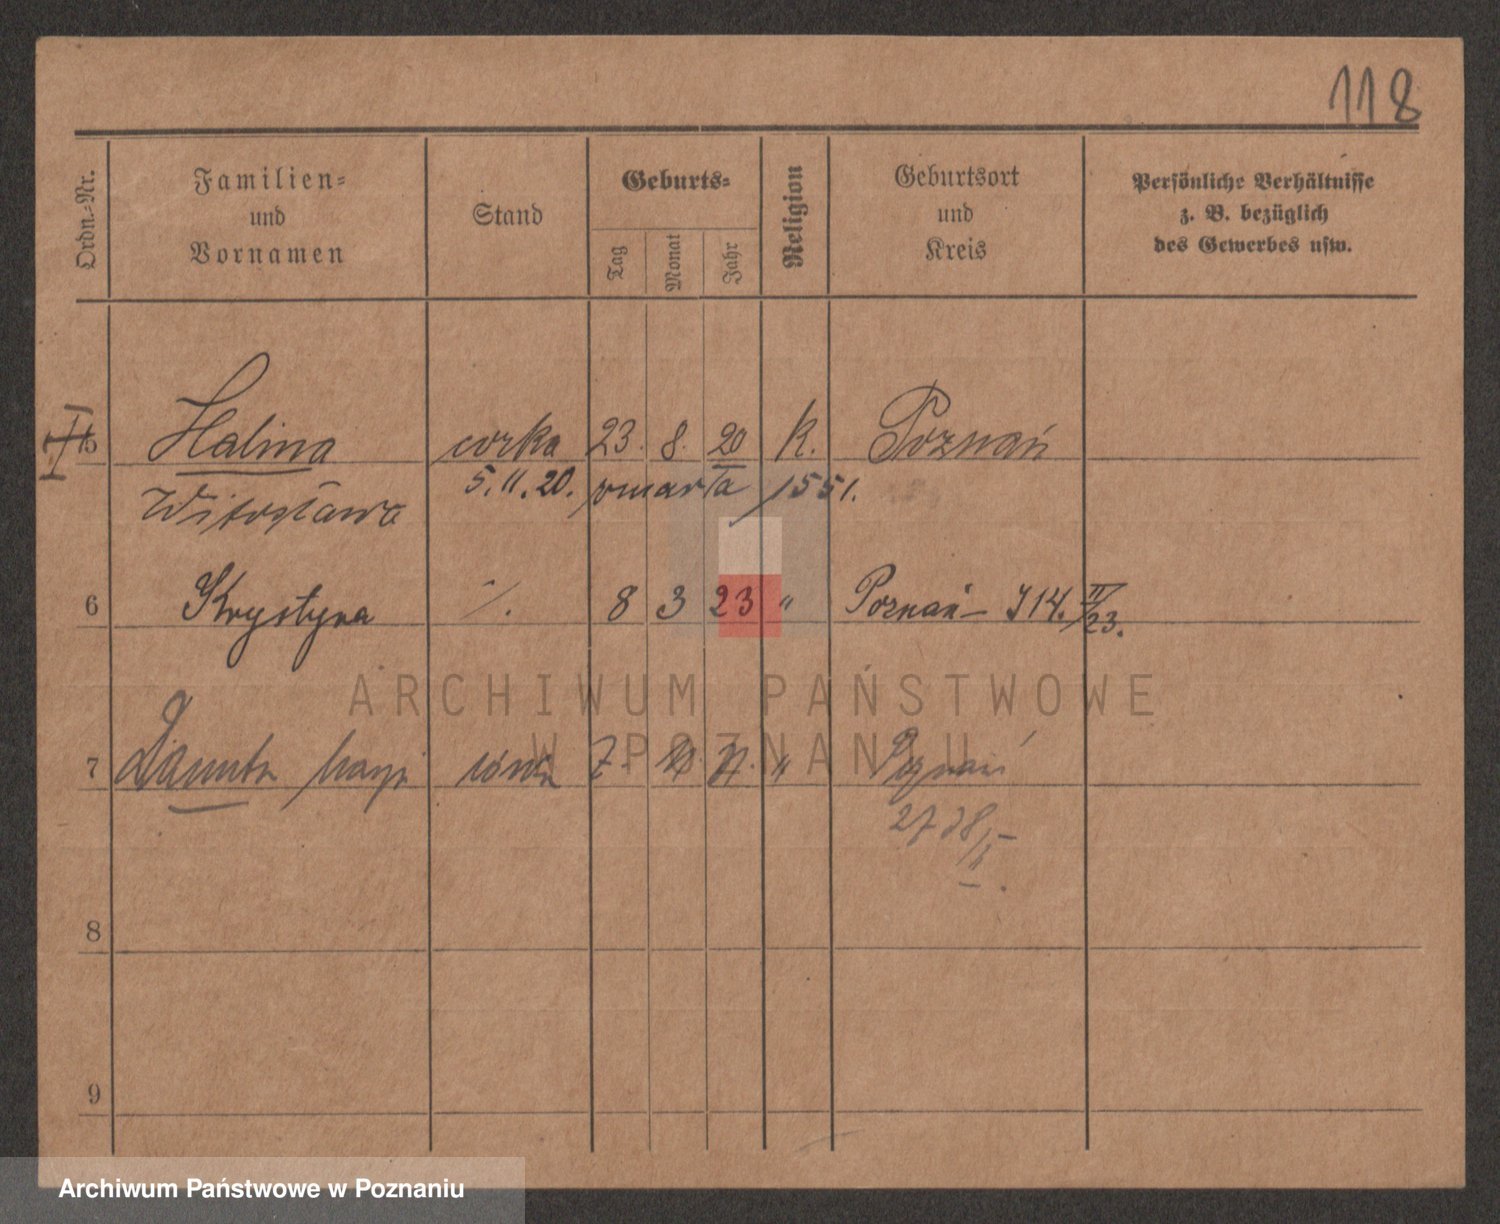 118
Ordn.-Nr.
Familien-
und
Vornamen
Stand
Geburts-
Tag
Monat
Jahr
Religion
Geburtsort
und
Kreis
Persönliche Verhältnisse
z. B. bezüglich
des Gewerbes usw.
5 Halina corka 23. 8. 20 K. Poznań
Witosława 5. 11. 20. umarła 1551.
6 Krystyna 8 3 23 " Poznań – 714. II/23.
ARCHIWUM PAŃSTWOWE
W POZNANIU
7 Danuta córka 7. "
8
9
Archiwum Państwowe w Poznaniu